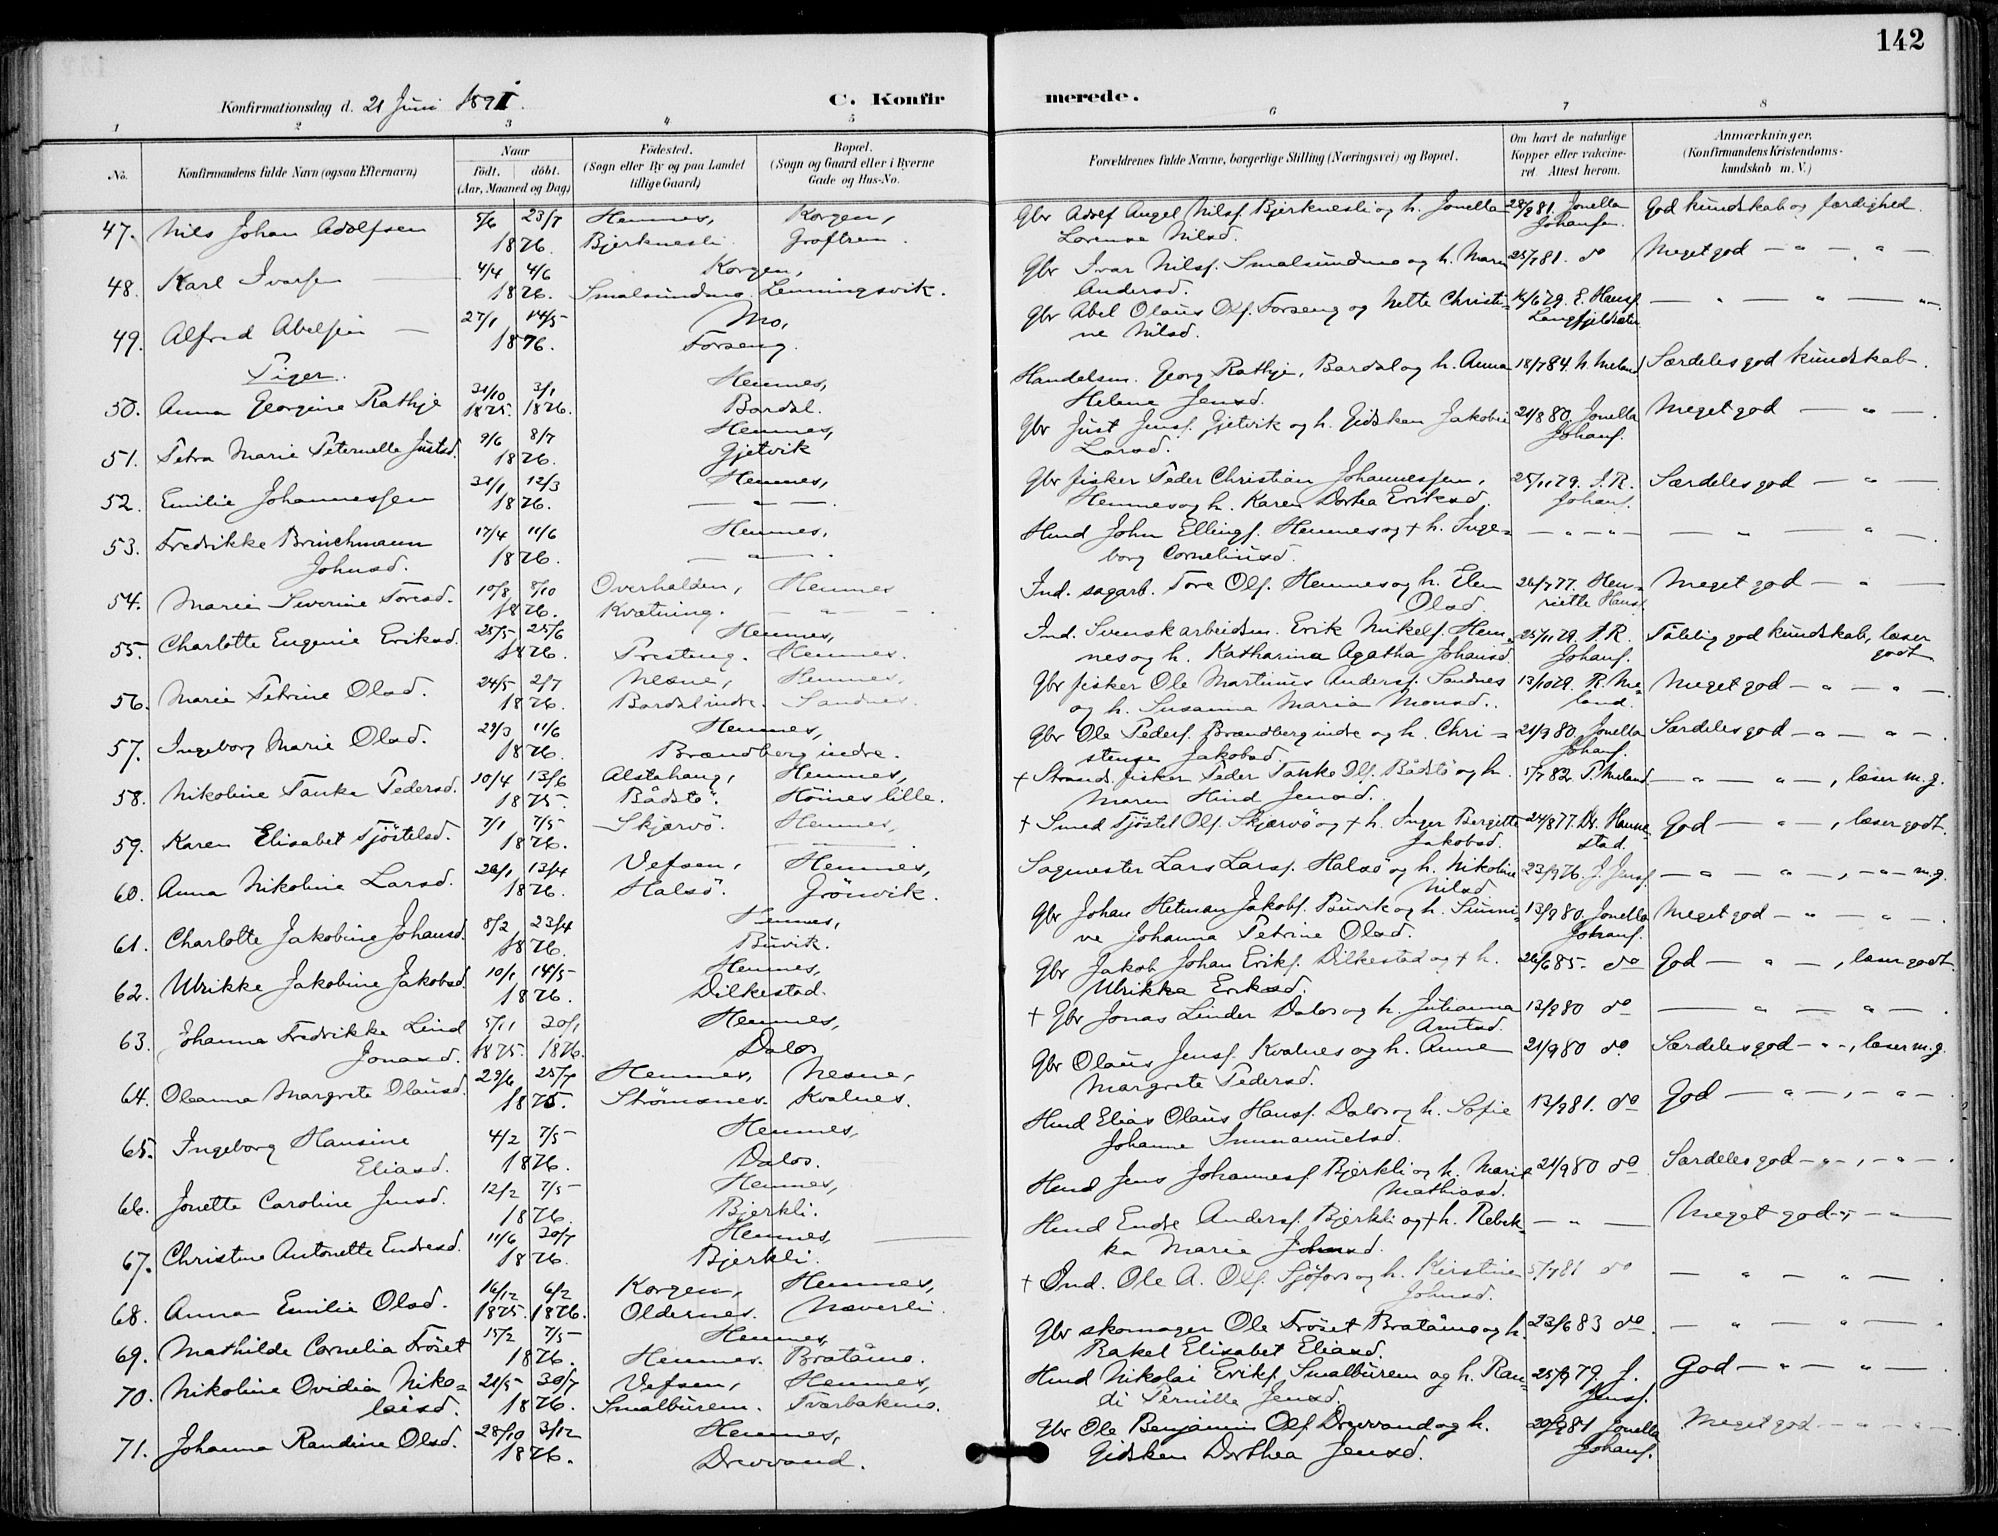 142
Konfirmationsdag d. 21 Juni 1891.
C. Konfirmerede.
1 2 3 4 5 6 7 8
No.
Konfirmandens fulde Navn (ogsaa Efternavn)
Naar
födt. döbt.
(Aar, Maaned og Dag)
Födested.
(Sogn eller By og paa Landet
tillige Gaard)
Bopæl.
(Sogn og Gaard eller i Byerne
Gade og Hus-No.
Forældrenes fulde Navne, borgerlige Stilling (Næringsvei) og Bopæl.
Om havt de naturlige
Kopper eller vakcine-
ret. Attest herom.
Anmærkninger.
(Konfirmandens Kristendoms-
kundskab m. V.)
47. Nils Johan Adolfsen 5/6 23/7 Hemnes, Korgen, Gbr Adolf Angel Nilsf. Bjerknesli og h. Jonella 28/9 81. Jonella God kundskab og færdighed.
1876. Bjerknesli. Lorense Nilsd. Johansen
48. Karl Ivarsen 4/4 4/6 Korgen, Gbr Ivar Nilsf. Smalsundmo og h. Maren 25/7 81. do Meget god — " — " —
1876. Smalsundmo. Lenningsvik. Andersd.
49. Alfred Abelsen 27/1 14/5 Mo, Gbr Abel Olaus Olf. Forseng og Nette Christi- 16/6 79. E. Hansf. — " — " — " —
1876. Forseng. ne Nilsd.
Piger.
50. Anna Georgine Rathje 31/10 3/1 Hemnes, Handelsm. Georg Rathje, Bardal og h. Anna 18/7 84. N. Meland Særdeles god kundskab.
1875. 1876. Bardal. Helene Jensd.
51. Petra Marie Peternelle Justsd. 9/6 8/7 Hemnes, Gbr Just Jensf. Gjetvik og h. Gidsken Jakobie 21/8 80. Jonella Meget god — " —
1876. Gjetvik Larsd. Johansf.
52. Emilie Johannessen 31/1 12/3 Hemnes, Gbr fisker Peder Christian Johannessen, 25/11 79. J. R. Særdeles god — " —
1876. — " — Hemnes og h. Karen Dortea Eriksd. Johansf.
53. Fredrikke Brinchmann 17/4 11/6 Hemnes, Hmd John Ellingf. Hemnes og + h. Inge- — " — " — — " — " —
Johnsd. 1876. — " — borg Corneliusd.
54. Marie Severine Toresd. 10/8 8/10 Overhalden, Hemnes Ind. sagarb. Tore Olf. Hemnes og h. Elen 26/7 77. Hen- Meget god — " —
1876. Kvætning. — " — Olsd. riette Hansf.
55. Charlotte Eugenie Eriksd. 25/5 25/6 Hemnes, Ind. Svensk arbeidsm. Erik Mikelf. Hem- 25/11 79. J. R. Tålelig god kundskab, læser
1876. Presteng. Hemnes. nes og h. Katharina Agatha Johansd. Johansf. godt
56. Marie Petrine Olsd. 24/5 2/7 Nesne, Hemnes, Gbr fisker Ole Martinus Andersf. Sandnes 13/10 79. R. Me- Meget god — " — " —
1876. Bardal indre. Sandnes. og h. Susanna Maria Monsd. land.
57. Ingeborg Marie Olsd. 29/3 11/6 Hemnes, Gbr Ole Pedersf. Brændberg indre og h. Chri- 21/9 80. Jonella Særdeles god — " — " —
1876. Brændberg indre. stense Jakobsd. Johansf.
58. Nikoline Tanke Pedersd. 10/4 13/6 Alstahaug, Hemnes, + Strands. fisker Peder Tanke Olf. Bådstö og h. 5/7 82 P. Meland — " — " —, læser m.g.
1875. Bådstö. Höines lille. Maren Hind Jensd.
59. Karen Elisabet Tjöstelsd. 7/1 7/5 Skjærvö. Hemnes, + Smed Tjöstel Olf. Skjærvö og + h. Inger Bergitte 24/8 77. Dr. Hanne- God — " —, læser godt.
1876. Jakobsd. stad.
60. Anna Nikoline Larsd. 26/1 13/4 Vefsen, Hemnes, Sagmester Lars Larsf. Halsö og h. Nikoline 23/9 76. J. Jensf. — " — " —, — " — m.g.
1876. Halsö. Grönvik. Nilsd.
61. Charlotte Jakobine Johansd. 8/2 23/4 Hemnes, Gbr Johan Hetman Jakobf. Buvik og h. Sunni- 13/9 80. Jonella Meget god — " — " —
1876. Buvik. ve Johanna Petrine Olsd. Johansf.
62. Ulrikke Jakobine Jakobsd. 10/1 14/5 Hemnes, Gbr Jakob Johan Erikf. Dilkestad og + h. 26/6 85. do God — " —, læser godt.
1876. Dilkestad. Ulrikka Eriksd.
63. Johanna Fredrikke Lind 5/11 30/1 Hemnes, + Gbr Jonas Linder Dalos og h. Julianna 13/9 80 do — " — " —
Jonasd. 1875. 1876. Dalos Arntsd.
64. Oleanna Margrete Olausd. 29/6 25/7 Hemnes, Nesne, Gbr Olaus Jensf. Kvalnes og h. Anne 21/9 80 do Særdeles god — " —, læser m.g.
1875. Strømsnes. Kvalnes. Margrete Pedersd.
65. Ingeborg Hansine 4/2 7/5 Hemnes, Hmd Elias Olaus Hansf. Dalos og h. Sofie 13/9 81. do God — " —, — " —
Eliasd. 1876. Dalos. Johanne Immanuelsd.
66. Jonette Caroline Jensd. 12/2 7/5 Hemnes, Hmd Jens Johannesf. Bjerkli og h. Marie 21/9 80 do Særdeles god — " —, — " —
1876. Bjerkli. Mathiasd.
67. Christine Antonette Endresd. 11/6 30/7 Hemnes, Hmd Endre Andersf. Bjerkli og + h. Rebek- — " — Meget god — " —
1876. Bjerkli. ka Marie Johnsd.
68. Anna Emilie Olsd. 16/12 6/2 Korgen, Hemnes, + Ind. Ole A. Olf. Sjöfors og h. Kirstine 5/7 81 do — " — " —
1875. 1876. Oldernes. Næverli. Johnsd.
69. Mathilde Cornelia Fröset 15/2 7/5 Hemnes, Gbr skomager Ole Fröset Bratåmo og h. 23/6 83 do. — " — " —
1876. Hemnes. Bratåmo. Rakel Elisabet Eliasd.
70. Nikoline Ovidia Niko- 21/5 30/7 Vefsen, Hemnes, Hmd Nikolai Erikf. Smalburem og h. Ran- 25/9 79. J. God — " — " —
laisd. 1876. Smalburem. Tverbakmo. di Pernille Jensd. Jensf.
71. Johanna Randine Olsd. 28/10 3/12 Hemnes, Gbr Ole Benjamin Olf. Drevvand og h. 20/9 81 Jonella Meget god — " — " —
1876. Drevvand. Gidsken Dorthea Jensd. Johansf.